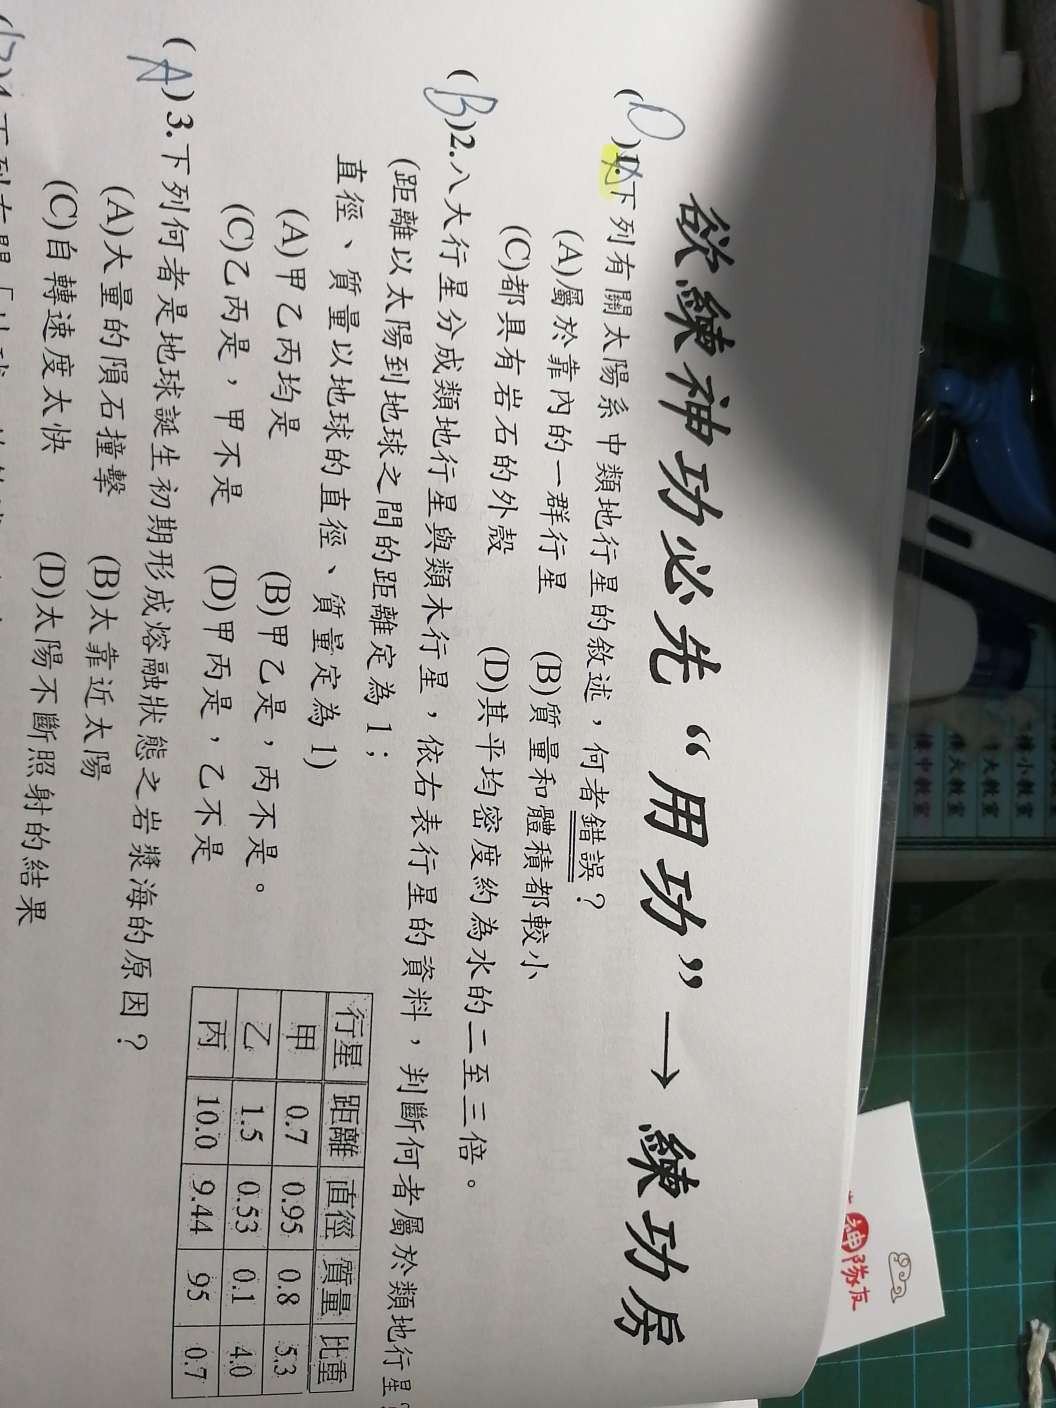 欲練神功必先“用功”→練功房
(D)1.下列有關太陽系中類地行星的敘述，何者錯誤？
(A)屬於靠內的一群行星 (B)質量和體積都較小
(C)都具有岩石的外殼 (D)其平均密度約為水的二至三倍。
(B)2.八大行星分成類地行星與類木行星，依右表行星的資料，判斷何者屬於類地行星？
(距離以太陽到地球之間的距離定為1；
直徑、質量以地球的直徑、質量定為1)
(A)甲乙丙均是 (B)甲乙是，丙不是。
(C)乙丙是，甲不是 (D)甲丙是，乙不是
行星 距離 直徑 質量 比重
甲 0.7 0.95 0.8 5.3
乙 1.5 0.53 0.1 4.0
丙 10.0 9.44 95 0.7
(A)3.下列何者是地球誕生初期形成熔融狀態之岩漿海的原因？
(A)大量的隕石撞擊 (B)太靠近太陽
(C)自轉速度太快 (D)太陽不斷照射的結果
神隊友